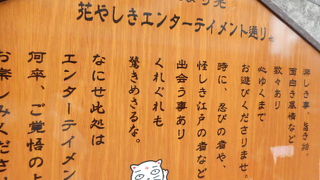 花やしきエンターテイメント通り
楽しき事、旨き話、
面白き風情など
数々あり
心ゆくまで
お遊びくださりませ。
時に、忍びの者や、
怪しき江戸の者などに
出会う事あり
くれぐれも
驚きめさるな。
なにせ此処は
エンターテイメン
何卒、ご覚悟の上
お楽しみくださ